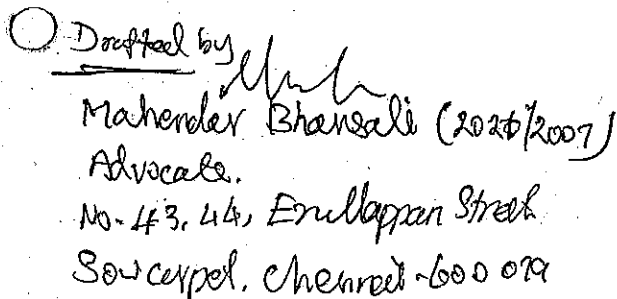 Drafted by
Mahendar Bhansali (2026/2007)
Advocate.
No. 43, 44, Erullappan Street
Sowcarpet. Chennai-600 079